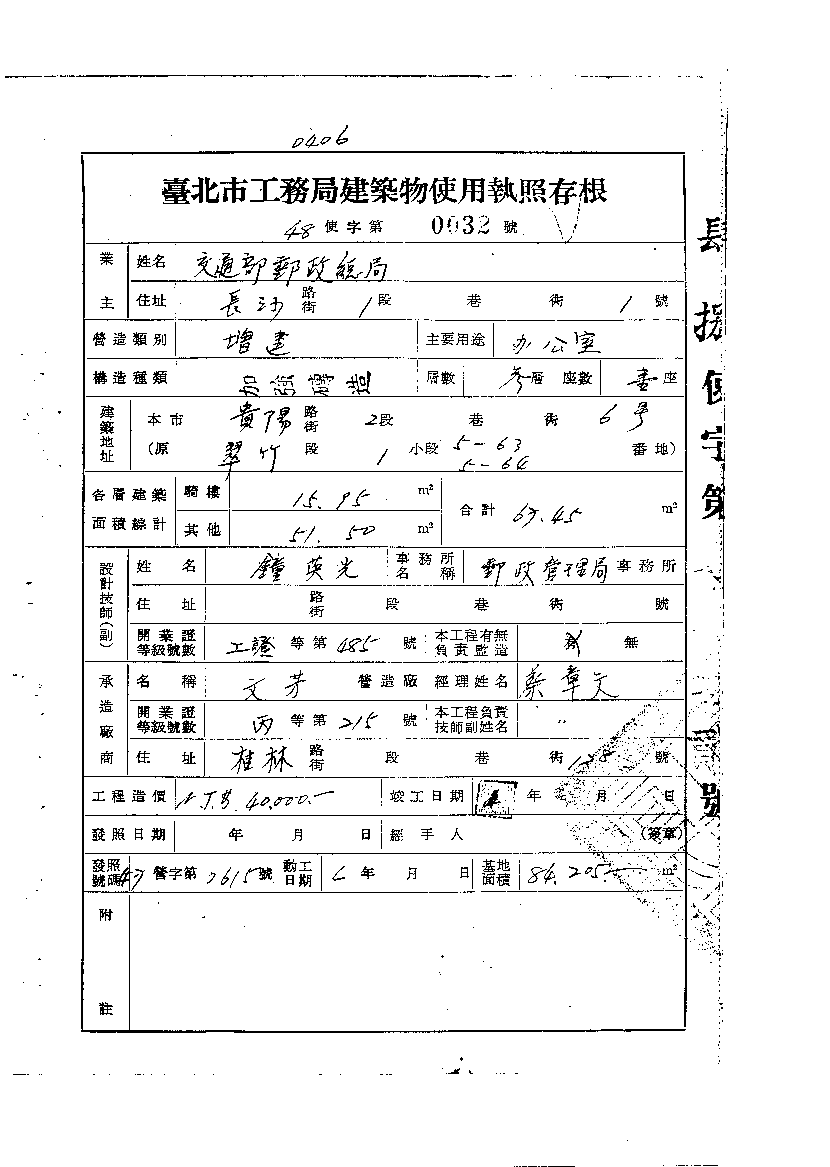 0406
臺北市工務局建築物使用執照存根
48 使字第 0032 號
業主 姓名 交通部郵政總局
住址 長沙 路街 1 段 巷 衖 1 號
營造類別 增建 主要用途 办公室
構造種類 加強磚造 層數 叁層 座數 壹座
建築地址 本市 貴陽 路街 2段 巷 衖 6号
(原 翠竹 段 1 小段 5-63 5-64 番地)
各層建築面積總計 騎樓 15.95 m² 合計 67.45 m²
其他 51.50 m²
設計技師(副) 姓名 鐘英光 事務所名稱 郵政管理局 事務所
住址 路街 段 巷 衖 號
開業證等級號數 工證 等第 485 號 本工程有無負責監造 有 無
承造廠商 名稱 文芳 營造廠 經理姓名 蔡章文
開業證等級號數 丙 等第 215 號 本工程負責技師副姓名 〃
住址 桂林 路街 段 巷 衖 號
工程造價 N.T.$ 40,000.— 竣工日期 年 月 日
發照日期 年 月 日 經手人 (簽章)
發照號碼 47 營字第 2615 號 動工日期 年 月 日 基地面積 84.205 m²
附註
肆捌使字第 號